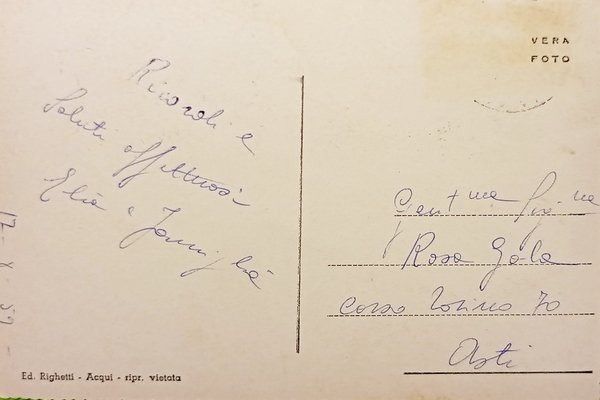 Ricordi e
Saluti affettuosi
Elia e famiglia
VERA
FOTO
Gent.ma Sig.na
Rosa Gola
Corso Torino 70
Asti
Ed. Righetti - Acqui - ripr. vietata